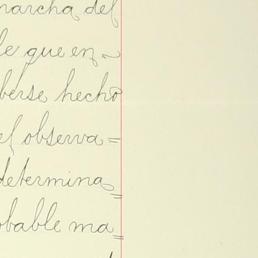 marcha del
le que en-
berse hecho
el observa=
determina=
obable ma=